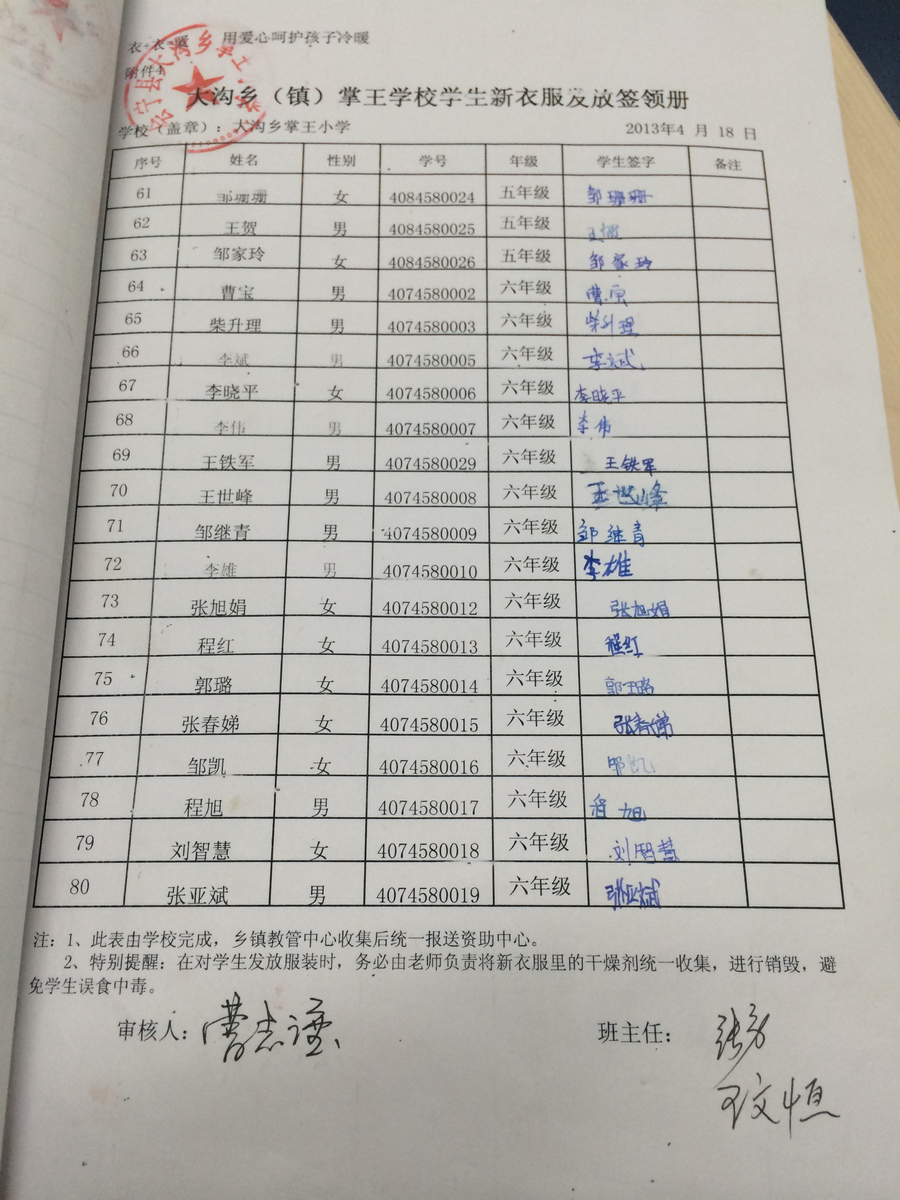 衣+衣=暖 用爱心呵护孩子冷暖
附件4
大沟乡（镇）掌王学校学生新衣服发放签领册
学校（盖章）：大沟乡掌王小学 2013年4 月 18 日
序号 姓名 性别 学号 年级 学生签字 备注
61 邹珊珊 女 4084580024 五年级 邹珊珊
62 王贺 男 4084580025 五年级
63 邹家玲 女 4084580026 五年级 邹家玲
64 曹宝 男 4074580002 六年级
65 柴升理 男 4074580003 六年级 柴升理
66 李斌 男 4074580005 六年级 李斌
67 李晓平 女 4074580006 六年级 李晓平
68 李伟 男 4074580007 六年级 李伟
69 王铁军 男 4074580029 六年级 王铁军
70 王世峰 男 4074580008 六年级 王世峰
71 邹继青 男 4074580009 六年级 邹继青
72 李雄 男 4074580010 六年级 李雄
73 张旭娟 女 4074580012 六年级 张旭娟
74 程红 女 4074580013 六年级 程红
75 郭璐 女 4074580014 六年级 郭璐
76 张春娣 女 4074580015 六年级 张春娣
77 邹凯 女 4074580016 六年级 邹凯
78 程旭 男 4074580017 六年级 程旭
79 刘智慧 女 4074580018 六年级 刘智慧
80 张亚斌 男 4074580019 六年级 张亚斌
注：1、此表由学校完成，乡镇教管中心收集后统一报送资助中心。
2、特别提醒：在对学生发放服装时，务必由老师负责将新衣服里的干燥剂统一收集，进行销毁，避
免学生误食中毒。
审核人： 班主任：
王文恒